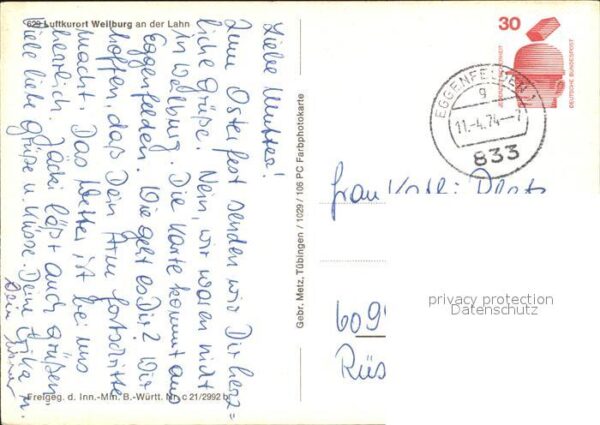 629 Luftkurort Weilburg an der Lahn
Liebe Mutter!
Zum Osterfest senden wir Dir herz=
liche Grüße. Nein, wir waren nicht
in Weilburg. Die Karte kommt aus
Eggenfelden. Wie geht es Dir? Wir
hoffen, daß Dein Arm fortschritte
macht. Das Wetter ist bei uns
herrlich. Jacki läßt auch grüßen.
Viele liebe Grüße u. Küsse. Deine Erika u.
Dein
Freigeg. d. Inn.-Min. B.-Württ. Nr. c 21/2992 b
Gebr. Metz, Tübingen / 1029 / 108 PC Farbphotokarte
30
DEUTSCHE BUNDESPOST
EGGENFELDEN 1
g
11.-4.74-7
833
Frau
609
Rüs
privacy protection
Datenschutz